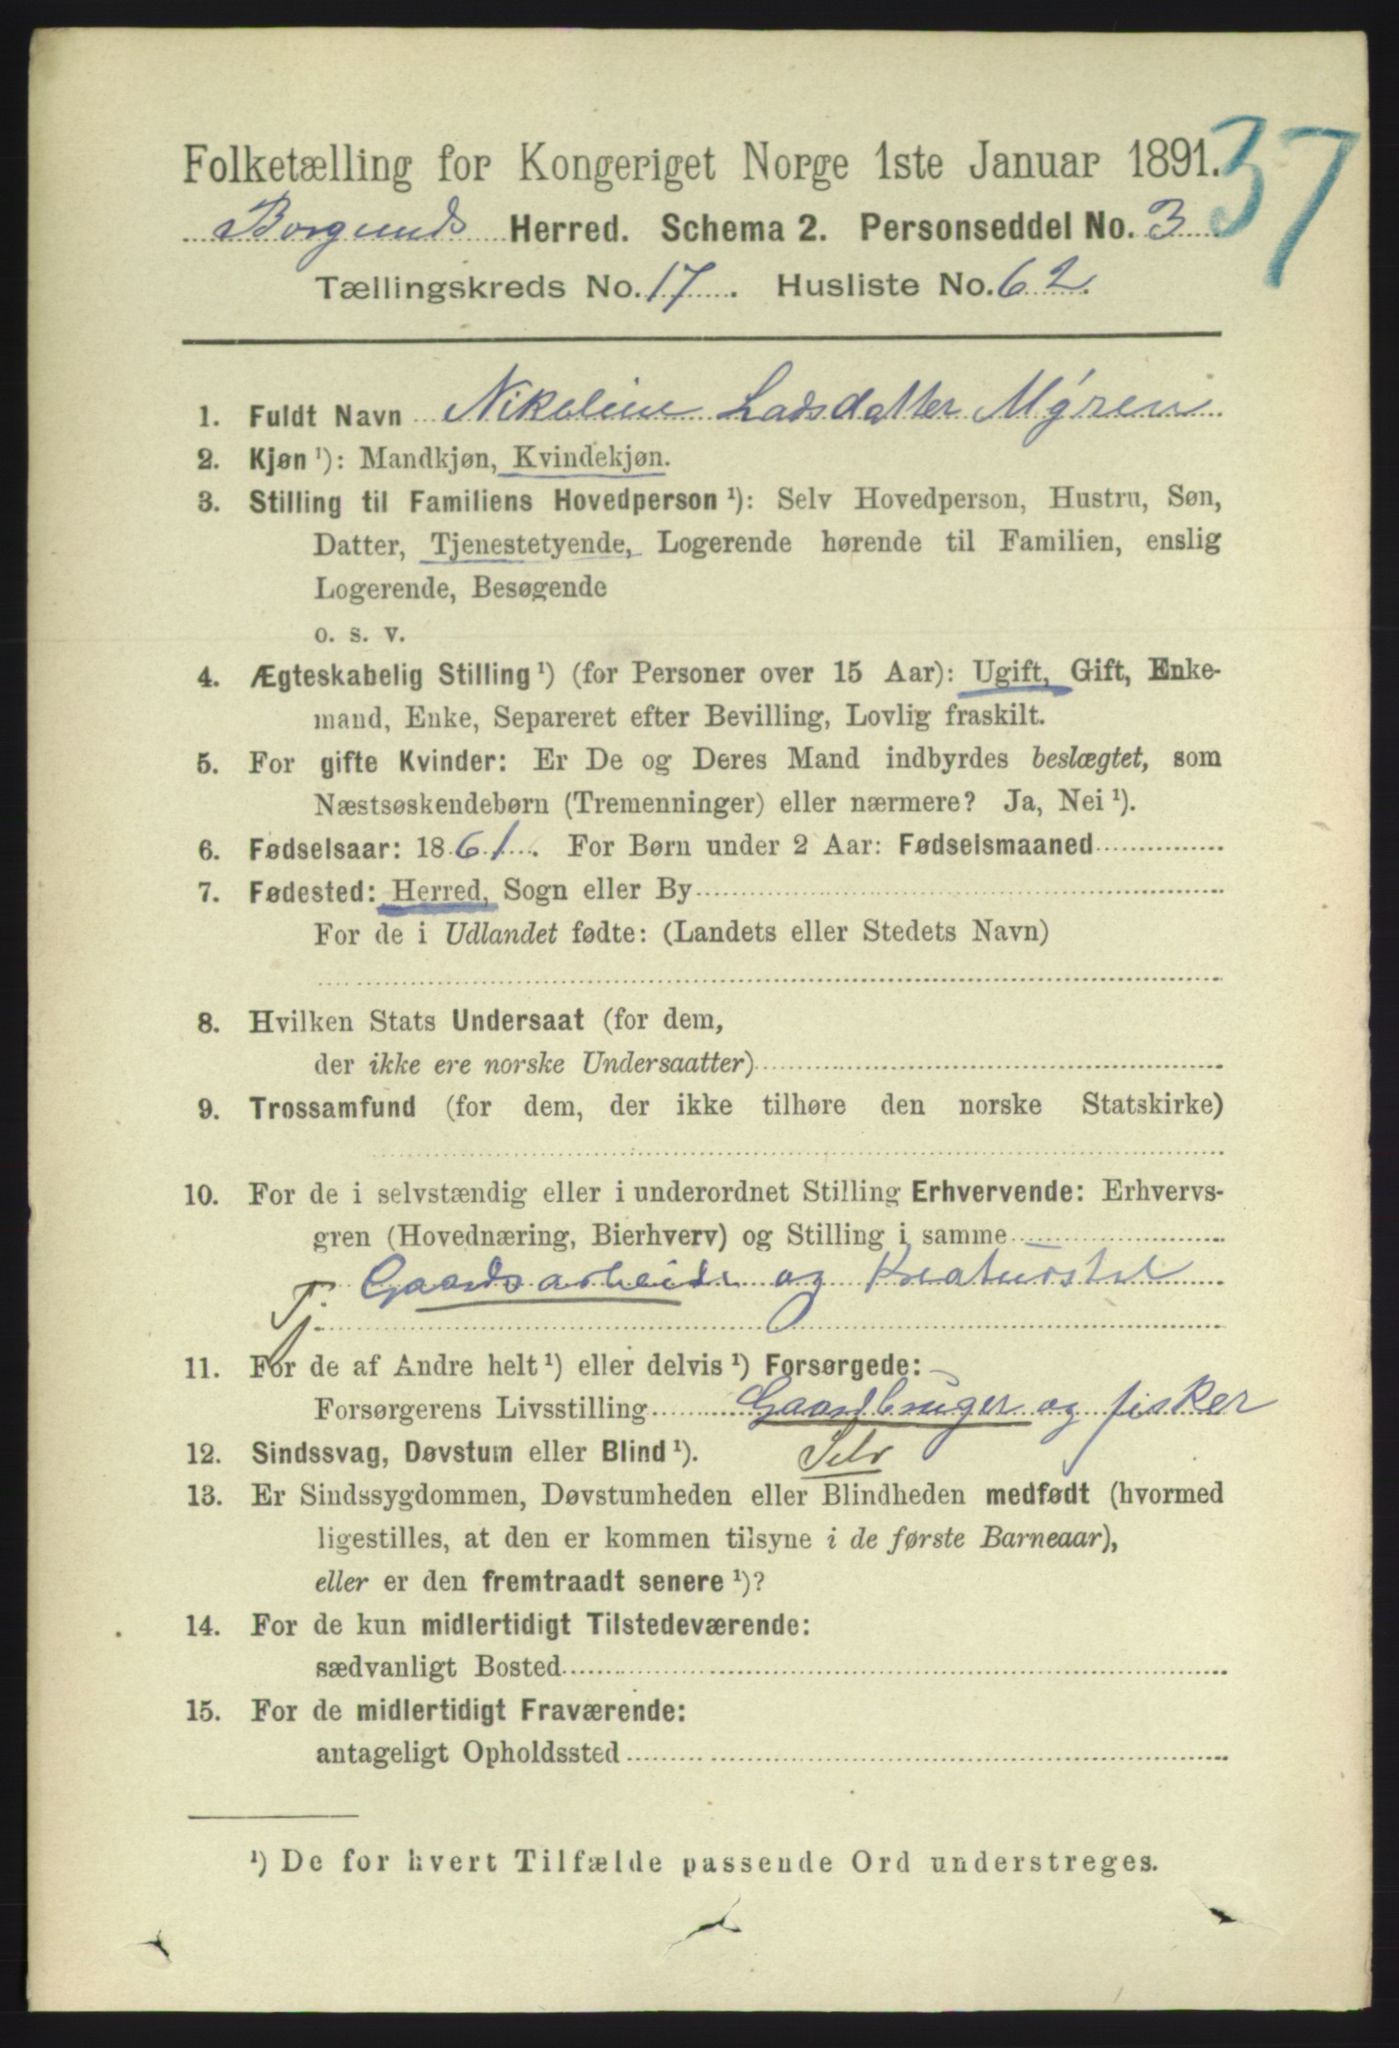 37
Folketælling for Kongeriget Norge 1ste Januar 1891.
Borgunds Herred. Schema 2. Personseddel No. 3
Tællingskreds No. 17. Husliste No. 62.
1. Fuldt Navn Nikoline Ladsdatter Myren
2. Kjøn ¹): Mandkjøn, Kvindekjøn.
3. Stilling til Familiens Hovedperson ¹): Selv Hovedperson, Hustru, Søn,
Datter, Tjenestetyende, Logerende hørende til Familien, enslig
Logerende, Besøgende
o. s. v.
4. Ægteskabelig Stilling ¹) (for Personer over 15 Aar): Ugift, Gift, Enke-
mand, Enke, Separeret efter Bevilling, Lovlig fraskilt.
5. For gifte Kvinder: Er De og Deres Mand indbyrdes beslægtet, som
Næstsøskendebørn (Tremenninger) eller nærmere? Ja, Nei ¹).
6. Fødselsaar: 1861. For Børn under 2 Aar: Fødselsmaaned
7. Fødested: Herred, Sogn eller By
For de i Udlandet fødte: (Landets eller Stedets Navn)
8. Hvilken Stats Undersaat (for dem,
der ikke ere norske Undersaatter)
9. Trossamfund (for dem, der ikke tilhøre den norske Statskirke)
10. For de i selvstændig eller i underordnet Stilling Erhvervende: Erhvervs-
gren (Hovednæring, Bierhverv) og Stilling i samme
Gaardsarbeide og Kreaturstel
Tj.
11. For de af Andre helt ¹) eller delvis ¹) Forsørgede:
Forsørgerens Livsstilling Gaardbruger og fisker
12. Sindssvag, Døvstum eller Blind ¹). Selv
13. Er Sindssygdommen, Døvstumheden eller Blindheden medfødt (hvormed
ligestilles, at den er kommen tilsyne i de første Barneaar),
eller er den fremtraadt senere ¹)?
14. For de kun midlertidigt Tilstedeværende:
sædvanligt Bosted
15. For de midlertidigt Fraværende:
antageligt Opholdssted
¹) De for hvert Tilfælde passende Ord understreges.